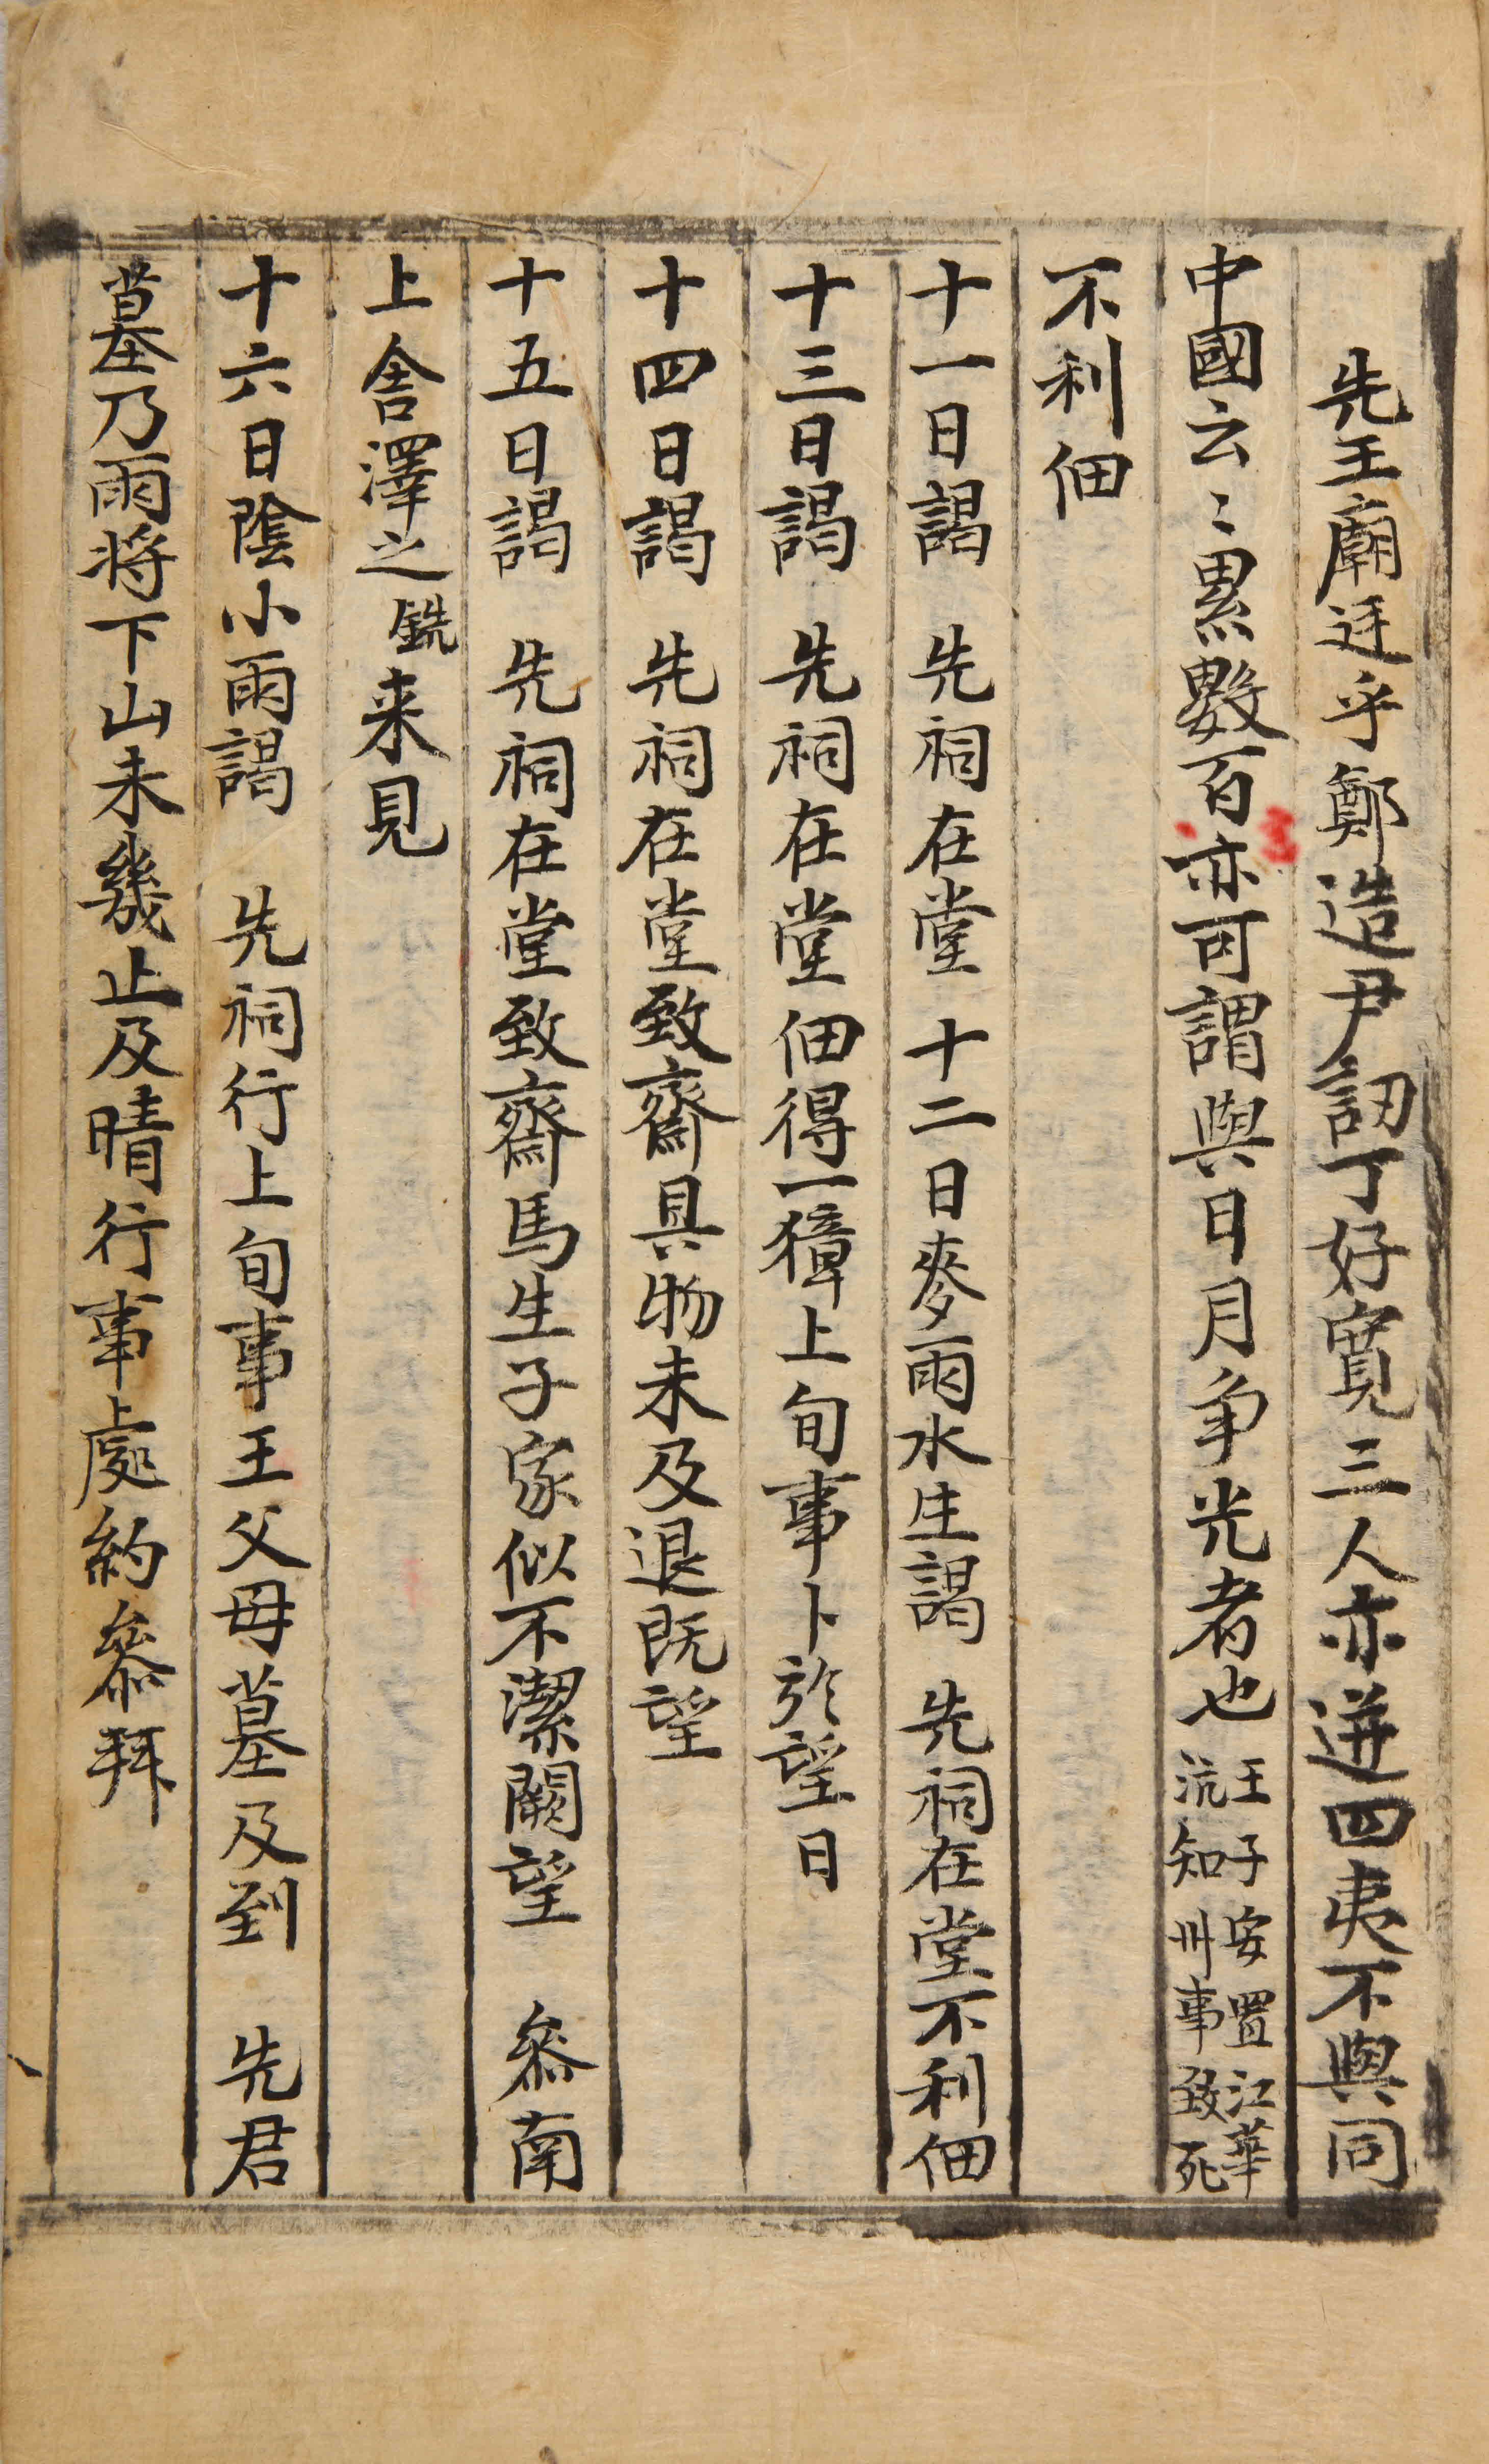 先王廟廷乎鄭造尹訒丁好寛三人亦迸四夷不與同
中國云〻累數百亦可謂與日月争光者也王子安置江華
沆知州事致死
不利佃
十一日謁 先祠在堂 十二日麥雨水生謁 先祠在堂不利佃
十三日謁 先祠在堂佃得一獐上旬事卜於望日
十四日謁 先祠在堂致齋具物未及退既望
十五日謁 先祠在堂致齋馬生子家似不潔闕望 叅南
上舍澤之銑来見
十六日陰小雨謁 先祠行上旬事王父母墓及到 先君
墓乃雨将下山未幾止及晴行事處約叅拜